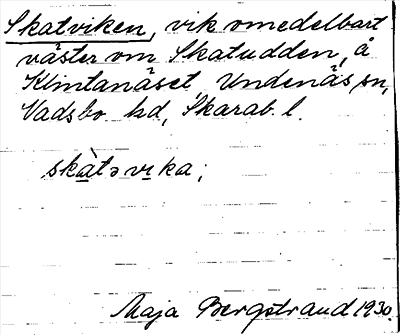 Skatviken, vik omedelbart
väster om Skatudden, å
Klintanäset, Undenäs sn,
Vadsbo hd, Skarab. l.
skàtəvika;
Maja Bergstrand 1930.